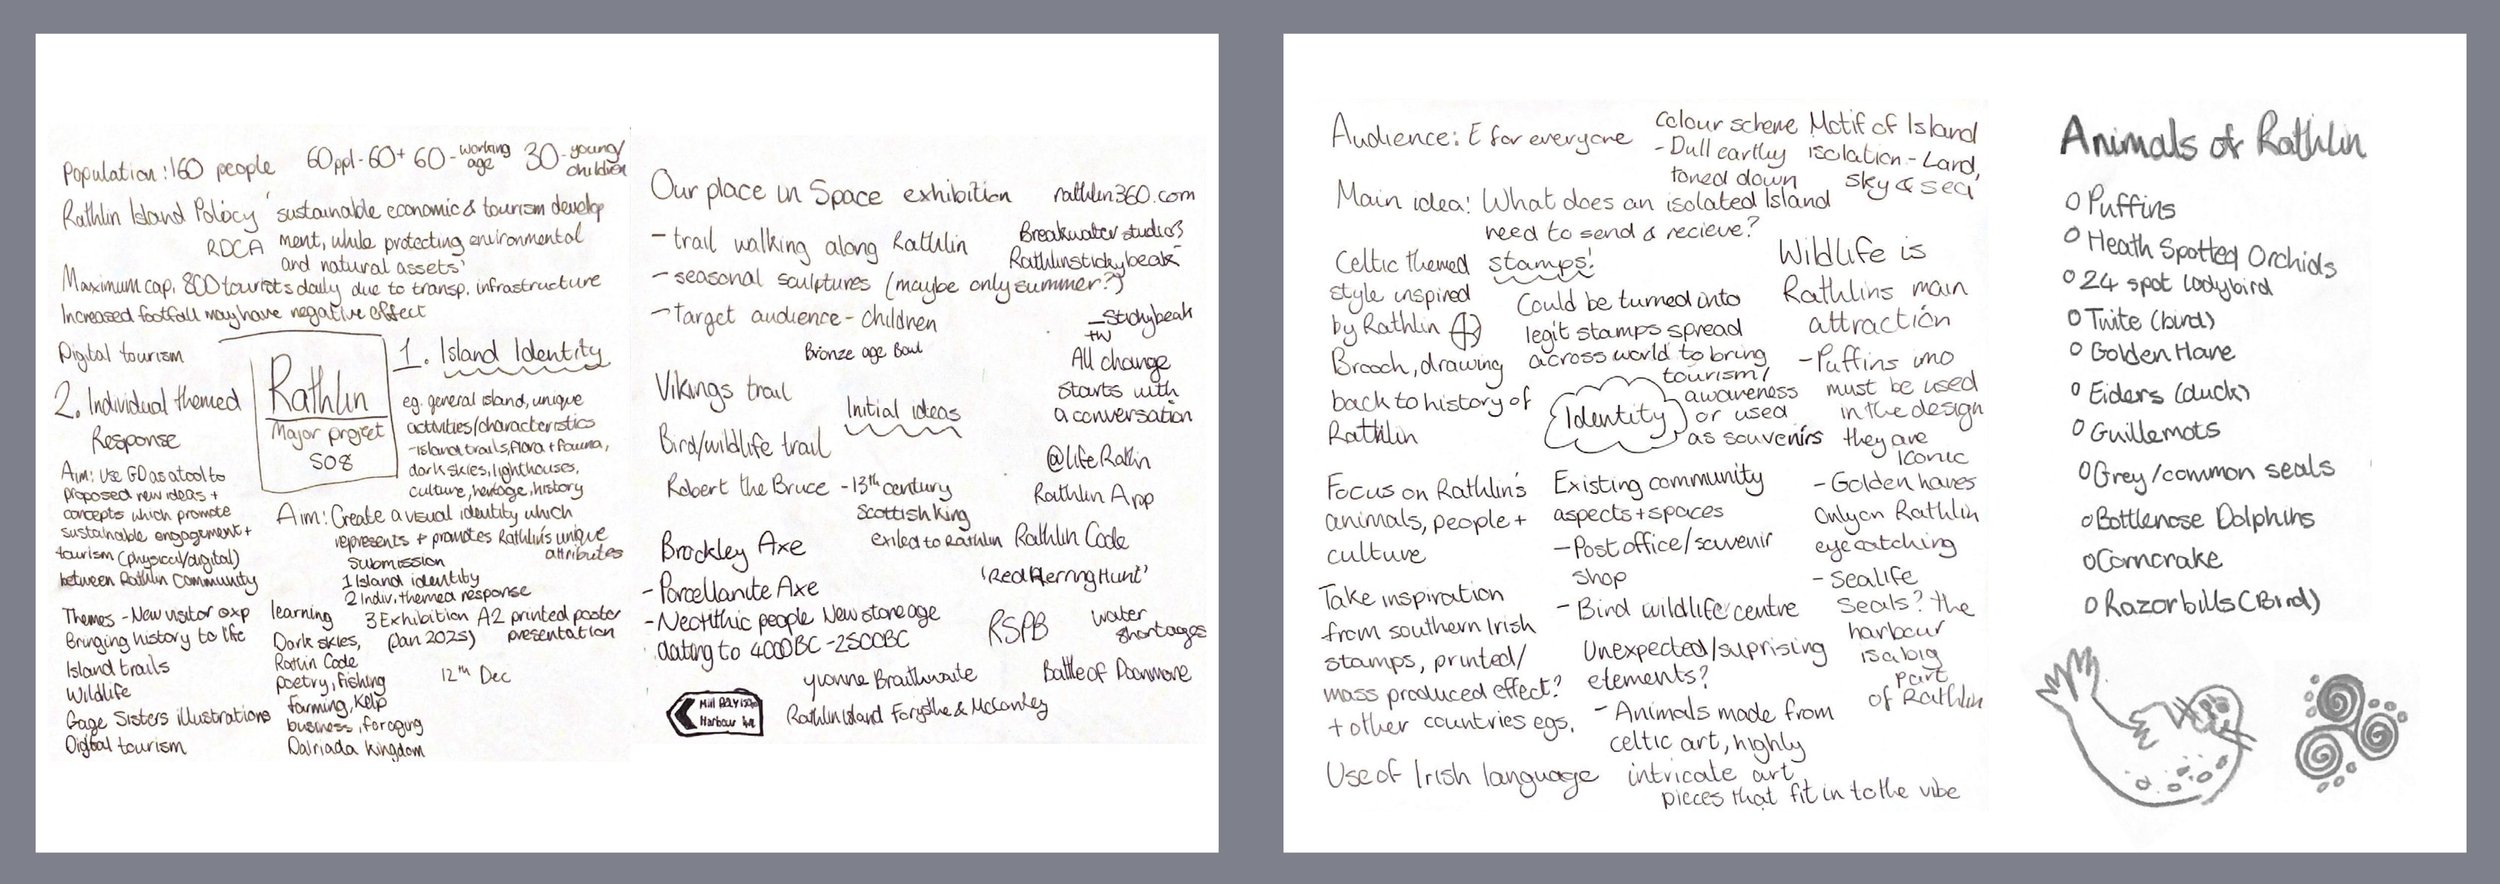 Population: 160 people
60ppl - 60+ 60 - working age 30 - young/children
Rathlin Island Policy 'sustainable economic & tourism develop
RDCA ment, while protecting environmental
and natural assets'
Maximum cap. 800 tourists daily due to transp. infrastructure
Increased footfall may have negative effect
Digital tourism
Rathlin
Major project
S08
1. Island Identity
eg. general island, unique
activities/characteristics
- island trails, flora + fauna,
dark skies, lighthouses,
culture, heritage, history
Aim: Create a visual identity which
represents + promotes Rathlin's unique
attributes
Submission
1 Island identity
2 Indiv. themed response
3 Exhibition A2 printed poster
(Jan 2025) presentation
12th Dec
2. Individual themed
Response
Aim: Use GD as a tool to
proposed new ideas +
concepts which promote
sustainable engagement +
tourism (physical/digital)
between Rathlin Community
Themes - New visitor exp
Bringing history to life
Island trails
Wildlife
Gage Sisters illustrations
Digital tourism
learning
Dark skies,
Ratlin Code
poetry, fishing
farming, kelp
business, foraging
Dalriada kingdom
Our place in Space exhibition
- trail walking along Rathlin
- seasonal sculptures (maybe only summer?)
- target audience - children
Bronze age Bowl
Vikings trail
Initial ideas
Bird/wildlife trail
Robert the Bruce - 13th century
Scottish King
exiled to Rathlin
Brockley Axe
- Porcellanite Axe
- Neolithic people New stone age
dating to 4000BC - 2500BC
Yvonne Braithwaite
Rathlin Island Forysthe & McConley
Harbour
rathlin360.com
Breakwater studios
Rathlinstickybeak
- Stickybeak
+w
All change
starts with
a conversation
@lifeRatlin
Rathlin App
Rathlin Code
'Red Herring Hunt'
RSPB
water
shortages
Battle of Doonmore
Audience: E for everyone
Main idea: What does an isolated Island
need to send & recieve?
Colour scheme
- Dull earthy
toned down
Motif of Island
isolation - Land,
sky & sea
Celtic themed
style inspired
by Rathlin
Brooch, drawing
back to history of
Rathlin
stamps!
Could be turned into
legit stamps spread
across world to bring
tourism/
awareness
or used
as souvenirs
Identity
Wildlife is
Rathlins main
attraction
- Puffins imo
must be used
in the design
they are
iconic
- Golden hares
only on Rathlin
eyecatching
- Sealife
Seals? the
harbour
is a big
part
of Rathlin
Focus on Rathlin's
animals, people +
culture
Take inspiration
from southern Irish
stamps, printed/
mass produced effect?
+ other countries egs.
Use of Irish language
Existing community
aspects + spaces
- Post office/souvenir
shop
- Bird wildlife centre
Unexpected/suprising
elements?
- Animals made from
celtic art, highly
intricate art
pieces that fit in to the vibe
Animals of Rathlin
Puffins
Heath Spotted Orchids
24 spot ladybird
Twite (bird)
Golden Hare
Eiders (duck)
Guillemots
Grey/common seals
Bottlenose Dolphins
Corncrake
Razorbills (Bird)